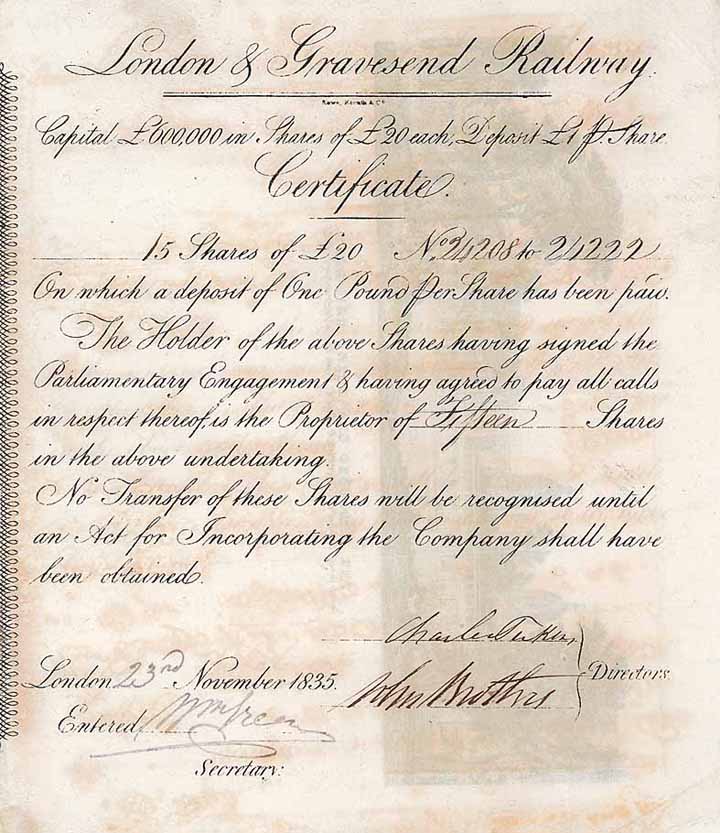 London & Gravesend Railway.
Capital £600,000 in Shares of £20 each, Deposit £1 P. Share.
Certificate.
15 Shares of £20 No. 24208 to 24222
On which a deposit of One Pound Per Share has been paid.
The Holder of the above Shares having signed the
Parliamentary Engagement & having agreed to pay all calls
in respect thereof, is the Proprietor of Fifteen Shares
in the above undertaking.
No Transfer of these Shares will be recognised until
an Act for Incorporating the Company shall have
been obtained.
Charles
John Brothers
Directors.
London 23rd November 1835.
Entered, Wm Green
Secretary.